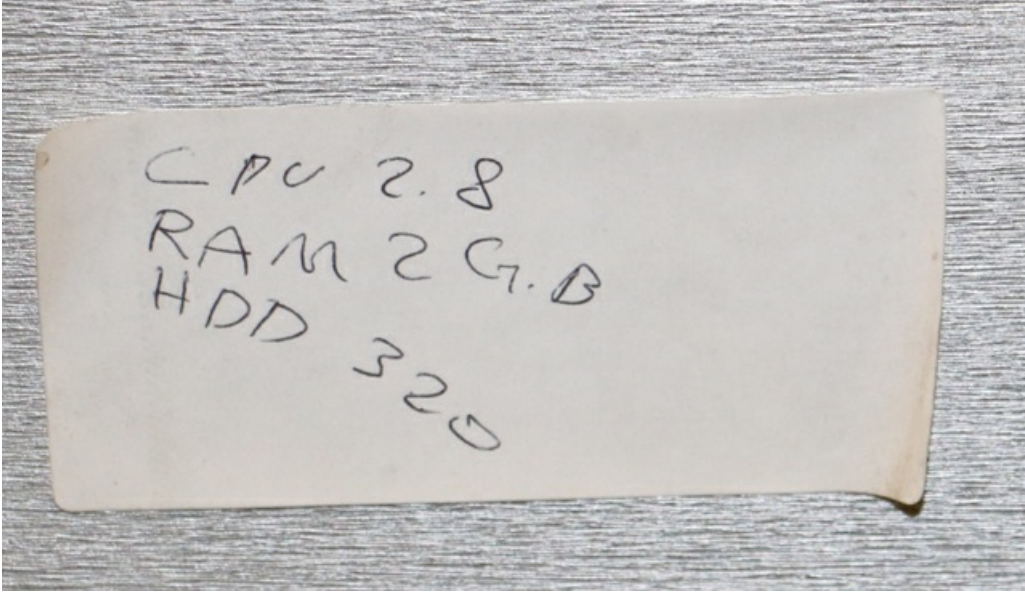 CPU 2.8
RAM 2 G.B
HDD 320